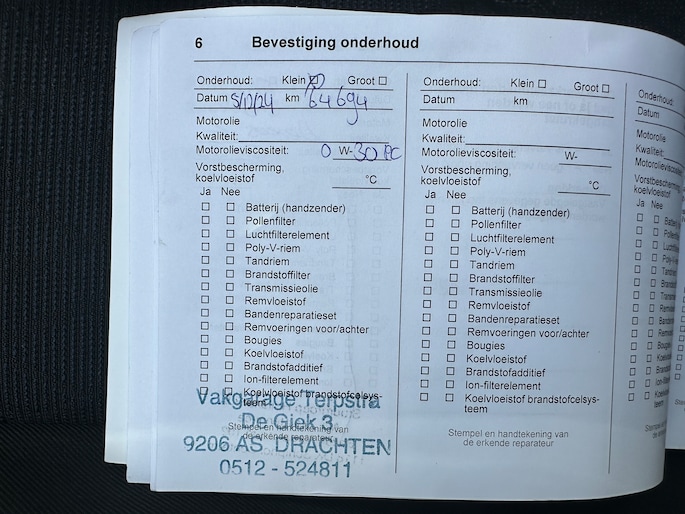 6 Bevestiging onderhoud
Onderhoud: Klein ☒ Groot ☐
Datum 5/12/24 km 64694
Motorolie
Kwaliteit:
Motorolieviscositeit: 0 W- 30 FC
Vorstbescherming,
koelvloeistof °C
Ja Nee
☐ ☐ Batterij (handzender)
☐ ☐ Pollenfilter
☐ ☐ Luchtfilterelement
☐ ☐ Poly-V-riem
☐ ☐ Tandriem
☐ ☐ Brandstoffilter
☐ ☐ Transmissieolie
☐ ☐ Remvloeistof
☐ ☐ Bandenreparatieset
☐ ☐ Remvoeringen voor/achter
☐ ☐ Bougies
☐ ☐ Koelvloeistof
☐ ☐ Brandstofadditief
☐ ☐ Ion-filterelement
☐ ☐ Koelvloeistof brandstofcelsys-
teem
Stempel en handtekening van
de erkende reparateur
Vakgarage Terpstra
De Giek 3
9206 AS DRACHTEN
0512 - 524811
Onderhoud: Klein ☐ Groot ☐
Datum km
Motorolie
Kwaliteit:
Motorolieviscositeit: W-
Vorstbescherming,
koelvloeistof °C
Ja Nee
☐ ☐ Batterij (handzender)
☐ ☐ Pollenfilter
☐ ☐ Luchtfilterelement
☐ ☐ Poly-V-riem
☐ ☐ Tandriem
☐ ☐ Brandstoffilter
☐ ☐ Transmissieolie
☐ ☐ Remvloeistof
☐ ☐ Bandenreparatieset
☐ ☐ Remvoeringen voor/achter
☐ ☐ Bougies
☐ ☐ Koelvloeistof
☐ ☐ Brandstofadditief
☐ ☐ Ion-filterelement
☐ ☐ Koelvloeistof brandstofcelsys-
teem
Stempel en handtekening van
de erkende reparateur
Onderhoud:
Datum
Motorolie
Kwaliteit:
Motorolieviscos
Vorstbescherming,
koelvloeistof
Ja Nee